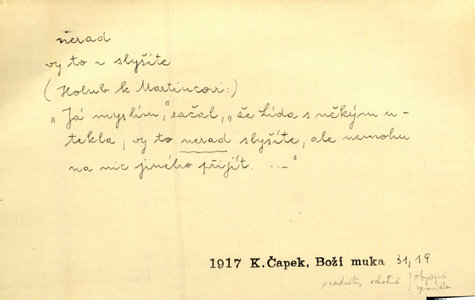 nerad
vy to n slyšíte
(Holub k Martincovi:)
"Já myslím," začal, "že Lída s někým u-
tekla; vy to nerad slyšíte, ale nemohu
na nic jiného přijít. ..."
1917 K.Čapek, Boží muka 31,19